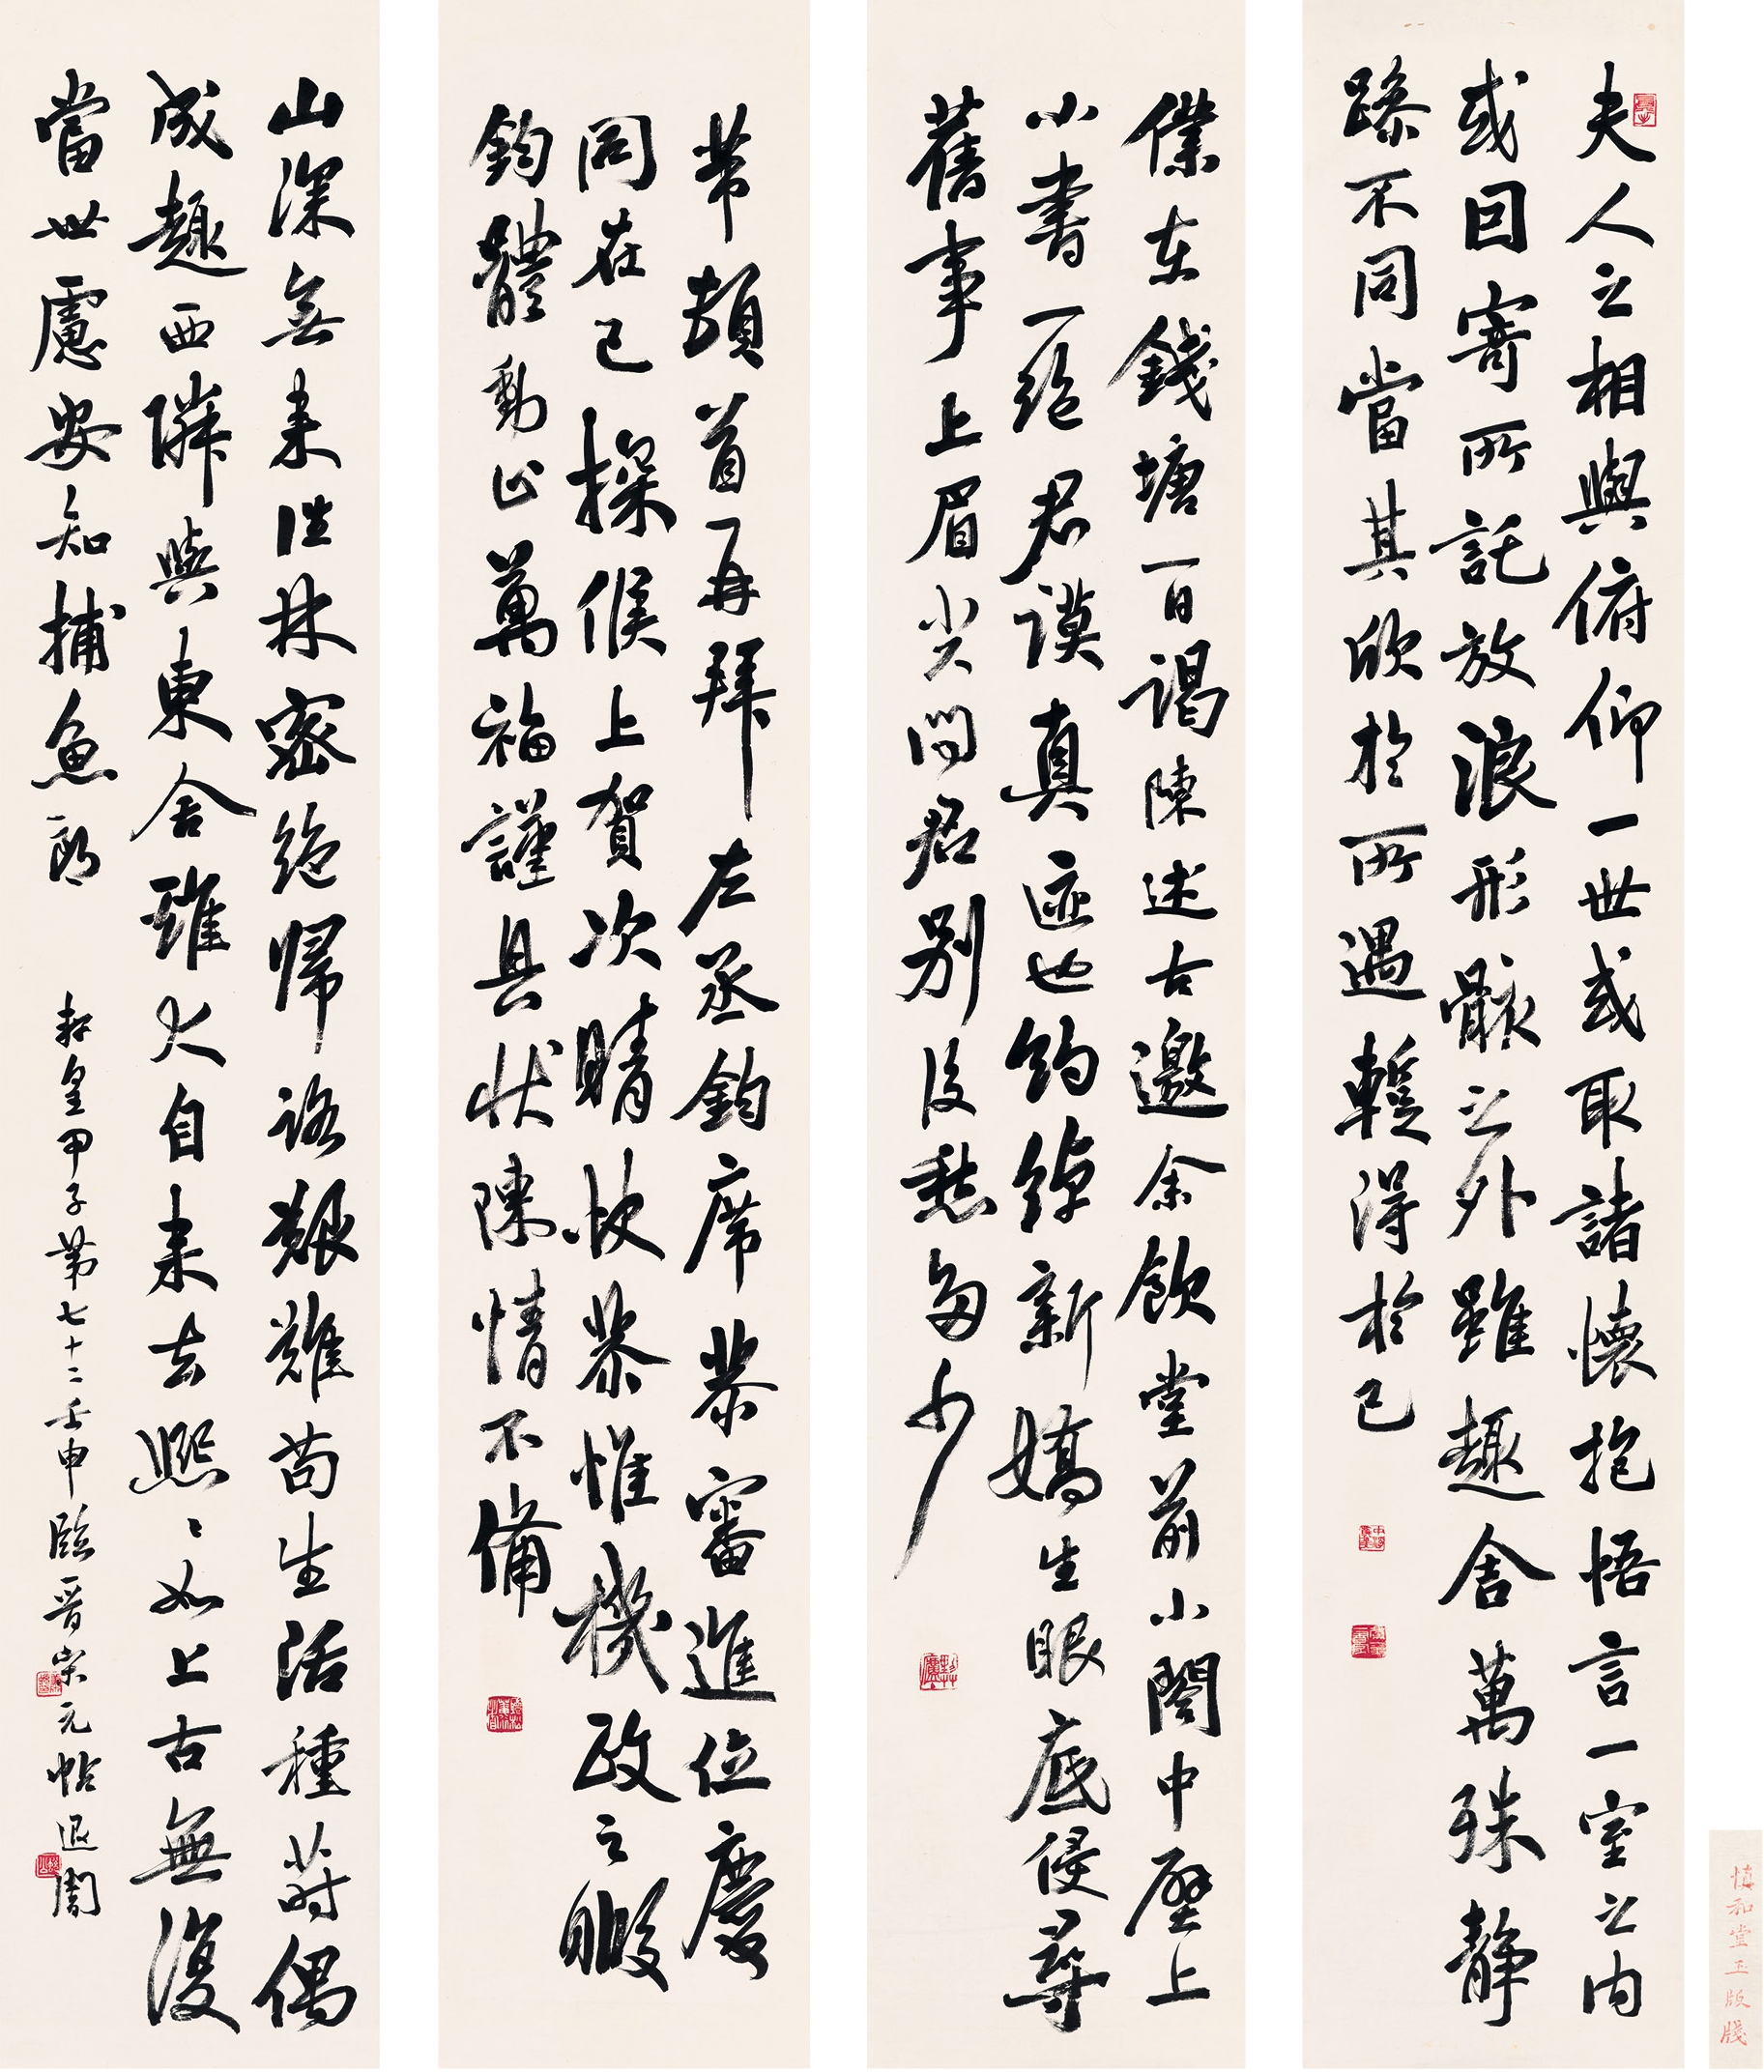 夫人之相與俯仰一世或取諸懷抱悟言一室之内
或因寄所託放浪形骸之外雖趣舍萬殊靜
躁不同當其欣於所遇蹔得於己
僕在錢塘一日謁陳述古邀余飲堂前小閣中壁上
小書一絶君謨真迹也約綽新嬌生眼底侵尋
舊事上眉尖問君别後愁多少
芾頓首再拜左丞鈞席恭審進位慶
同在己操候上賀次晴快恭惟機政之暇
鈞體動止萬福謹具状陳情不備
山深無来往林密絶帰路艱難苟生活種莳偶
成趣西隣與東舍雞犬自来去熙〻如上古無復
當世慮安知捕魚郎
軒皇甲子第七十二壬申臨晋宋元帖退闇
慎和堂玉版牋